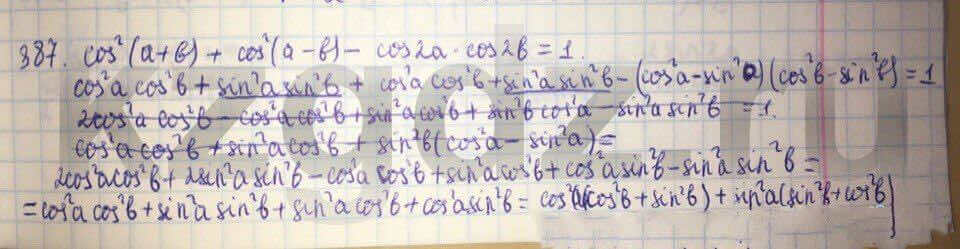 387. cos²(a+b) + cos²(a-b) - cos2a·cos2b = 1.
cos²a cos²b + sin²a sin²b + cos²a cos²b + sin²a sin²b - (cos²a - sin²a)(cos²b - sin²b) = 1
2cos²a cos²b - cos²a cos²b + sin²a cos²b + sin²b cos²a - sin²a sin²b = 1.
cos²a cos²b + sin²a cos²b + sin²b(cos²a - sin²a) =
2cos²a cos²b + 2sin²a sin²b - cos²a cos²b + sin²a cos²b + cos²a sin²b - sin²a sin²b =
= cos²a cos²b + sin²a sin²b + sin²a cos²b + cos²a sin²b = cos²a(cos²b + sin²b) + sin²a(sin²b + cos²b)